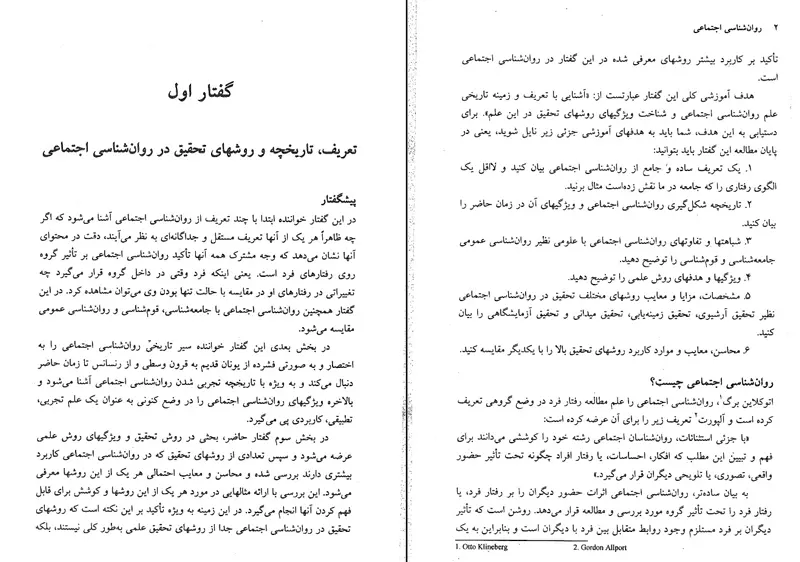 گفتار اول
تعریف، تاریخچه و روشهای تحقیق در روان‌شناسی اجتماعی
پیشگفتار
در این گفتار خواننده ابتدا با چند تعریف از روان‌شناسی اجتماعی آشنا می‌شود که اگر
چه ظاهراً هر یک از آنها تعریف مستقل و جداگانه‌ای به نظر می‌آیند، دقت در محتوای
آنها نشان می‌دهد که وجه مشترک همه آنها تأکید روان‌شناسی اجتماعی بر تأثیر گروه
روی رفتارهای فرد است. یعنی اینکه فرد وقتی در داخل گروه قرار می‌گیرد چه
تغییراتی در رفتارهای او در مقایسه با حالت تنها بودن وی می‌توان مشاهده کرد. در این
گفتار همچنین روان‌شناسی اجتماعی با جامعه‌شناسی، قوم‌شناسی و روان‌شناسی عمومی
مقایسه می‌شود.
در بخش بعدی این گفتار خواننده سیر تاریخی روان‌شناسی اجتماعی را به
اختصار و به صورتی فشرده از یونان قدیم به قرون وسطی و از رنسانس تا زمان حاضر
دنبال می‌کند و به ویژه با تاریخچه تجربی شدن روان‌شناسی اجتماعی آشنا می‌شود و
بالاخره ویژگیهای روان‌شناسی اجتماعی را در وضع کنونی به عنوان یک علم تجربی،
تطبیقی، کاربردی پی می‌گیرد.
در بخش سوم گفتار حاضر، بحثی در روش تحقیق و ویژگیهای روش علمی
عرضه می‌شود و سپس تعدادی از روشهای تحقیق که در روان‌شناسی اجتماعی کاربرد
بیشتری دارند بررسی شده و محاسن و معایب احتمالی هر یک از این روشها معرفی
می‌شود. این بررسی با ارائه مثالهایی در مورد هر یک از این روشها و کوشش برای قابل
فهم کردن آنها انجام می‌گیرد. در این زمینه به ویژه تأکید بر این نکته است که روشهای
تحقیق در روان‌شناسی اجتماعی جدا از روشهای تحقیق علمی به‌طور کلی نیستند، بلکه
۲ روان‌شناسی اجتماعی
تأکید بر کاربرد بیشتر روشهای معرفی شده در این گفتار در روان‌شناسی اجتماعی
است.
هدف آموزشی کلی این گفتار عبارتست از: «آشنایی با تعریف و زمینه تاریخی
علم روان‌شناسی اجتماعی و شناخت ویژگیهای روشهای تحقیق در این علم». برای
دستیابی به این هدف، شما باید به هدفهای آموزشی جزئی زیر نایل شوید، یعنی در
پایان مطالعه این گفتار باید بتوانید:
۱. یک تعریف ساده و جامع از روان‌شناسی اجتماعی بیان کنید و لااقل یک
الگوی رفتاری را که جامعه در ما نقش زده‌است مثال بزنید.
۲. تاریخچه شکل‌گیری روان‌شناسی اجتماعی و ویژگیهای آن در زمان حاضر را
بیان کنید.
۳. شباهتها و تفاوتهای روان‌شناسی اجتماعی با علومی نظیر روان‌شناسی عمومی
جامعه‌شناسی و قوم‌شناسی را توضیح دهید.
۴. ویژگیها و هدفهای روش علمی را توضیح دهید.
۵. مشخصات، مزایا و معایب روشهای مختلف تحقیق در روان‌شناسی اجتماعی
نظیر تحقیق آرشیوی، تحقیق زمینه‌یابی، تحقیق میدانی و تحقیق آزمایشگاهی را بیان
کنید.
۶. محاسن، معایب و موارد کاربرد روشهای تحقیق بالا را با یکدیگر مقایسه کنید.
روان‌شناسی اجتماعی چیست؟
اتوکلاین برگ۱، روان‌شناسی اجتماعی را علم مطالعه رفتار فرد در وضع گروهی تعریف
کرده است و آلپورت۲ تعریف زیر را برای آن عرضه کرده است:
«با جزئی استثنائات، روان‌شناسان اجتماعی رشته خود را کوششی می‌دانند برای
فهم و تبیین این مطلب که افکار، احساسات، یا رفتار افراد چگونه تحت تأثیر حضور
واقعی، تصوری، یا تلویحی دیگران قرار می‌گیرد.»
به بیان ساده‌تر، روان‌شناسی اجتماعی اثرات حضور دیگران را بر رفتار فرد، یا
رفتار فرد را تحت تأثیر گروه مورد بررسی و مطالعه قرار می‌دهد. روشن است که تأثیر
دیگران بر فرد مستلزم وجود روابط متقابل بین فرد با دیگران است و بنابراین به یک
1. Otto Klineberg 2. Gordon Allport